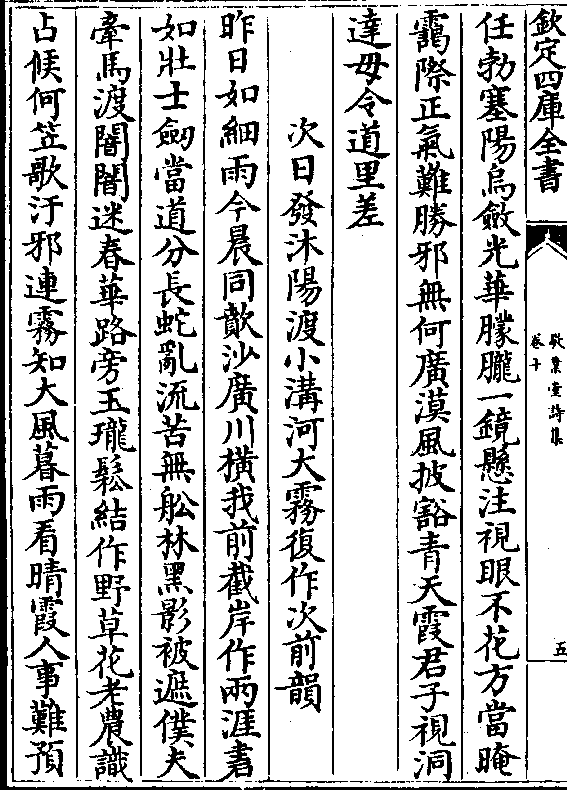 欽定四庫全書
敬業堂詩集
卷十
五
任勃塞陽烏斂光華朦朧一鏡懸注視眼不花方當晻
靄際正氣難勝邪無何廣漠風披豁青天霞君子視洞
達毋令道里差
次日發沐陽渡小溝河大霧復作次前韻
昨日如細雨今晨同歕沙廣川橫我前截岸作兩涯砉
如壯士劒當道分長蛇亂流苦無舩林黑影被遮僕夫
牽馬渡闇闇迷春華路旁玉瓏鬆結作野草花老農識
占候何笠歌汙邪連霧知大風暮雨看晴霞人事難預